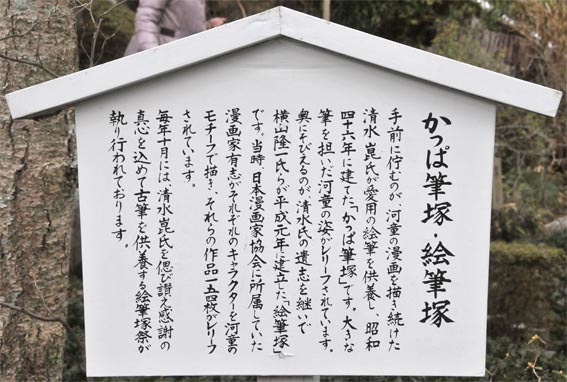 かっぱ筆塚・絵筆塚
手前に佇むのが、河童の漫画を描き続けた
清水崑氏が愛用の絵筆を供養し、昭和
四十六年に建てた「かっぱ筆塚」です。大きな
筆を担いだ河童の姿がレリーフされています。
奥にそびえるのが、清水氏の遺志を継いで
横山隆一氏らが平成元年に建立した、「絵筆塚」
です。当時、日本漫画家協会に所属していた
漫画家有志がそれぞれのキャラクターを河童の
モチーフで描き、それらの作品一五四枚がレリーフ
されています。
毎年十月には、清水崑氏を偲び讃え感謝の
真心を込めて古筆を供養する絵筆塚祭が
執り行われております。